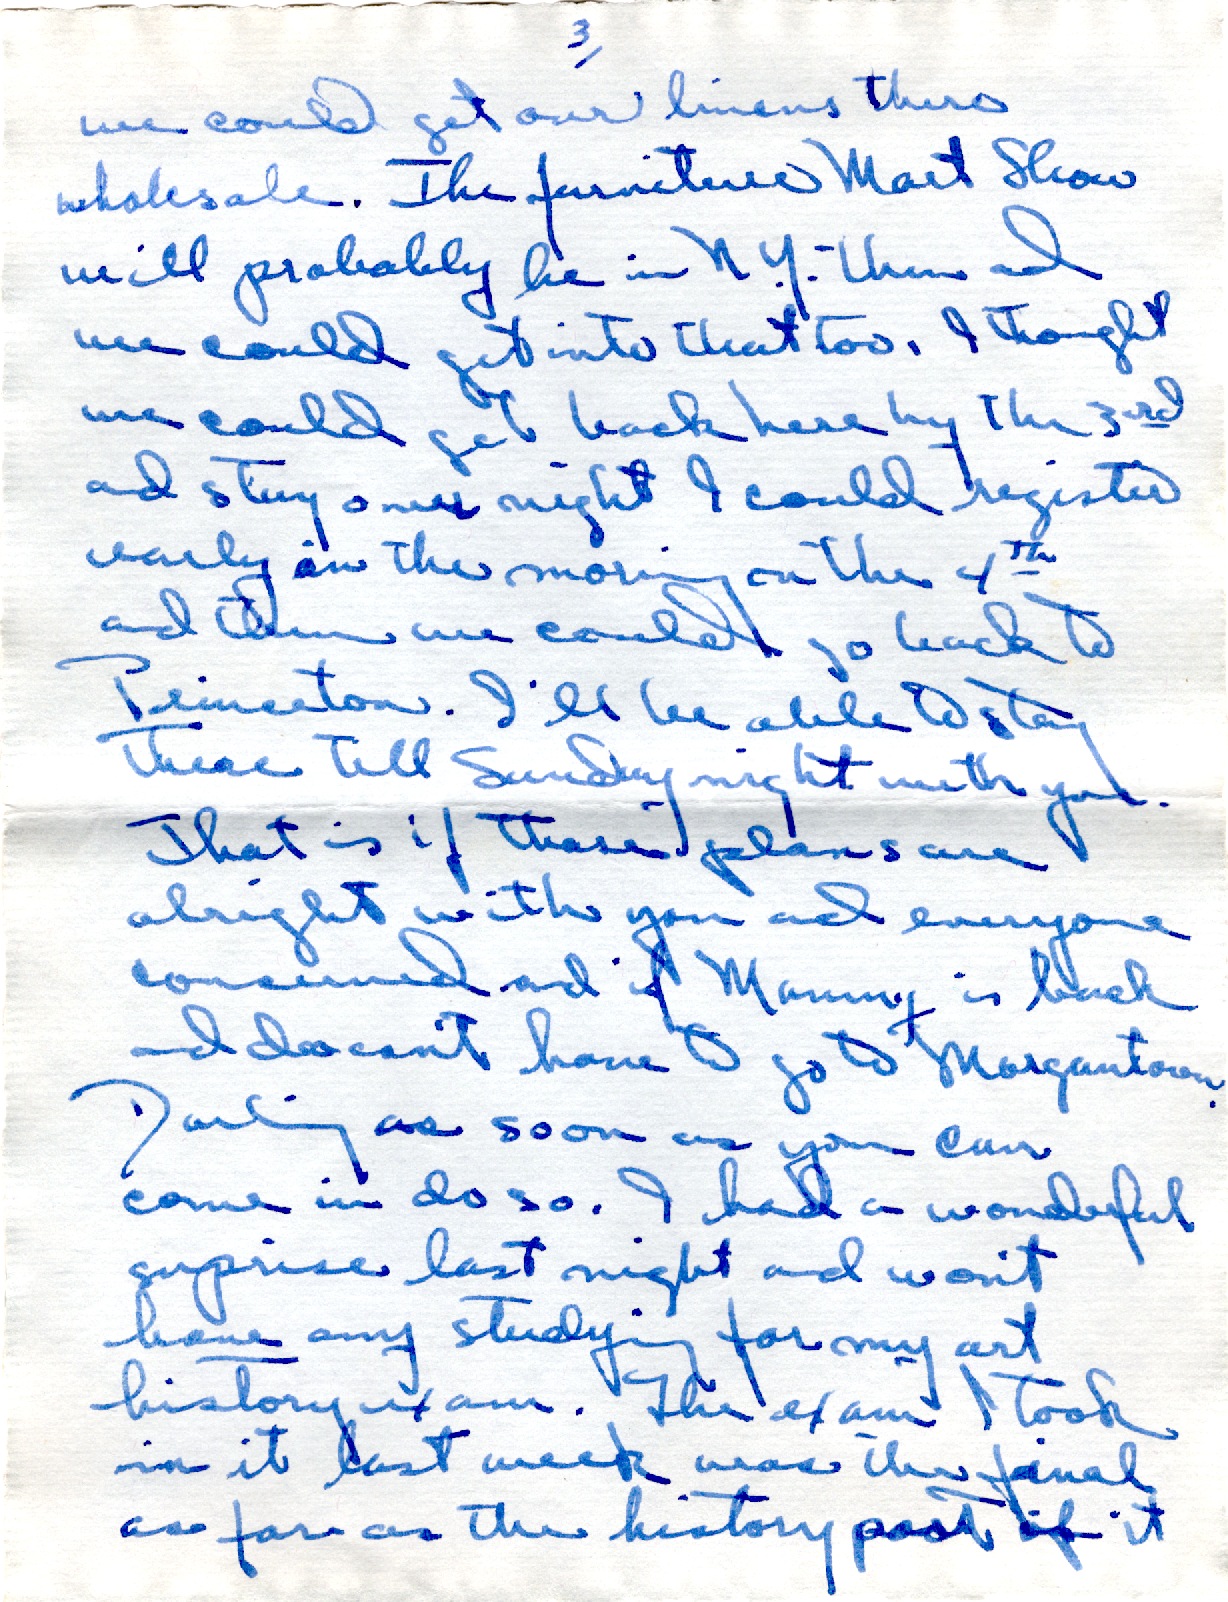 3/
we could get our linens there
wholesale. The furniture Mart Show
will probably be in N.Y. then and
we could get into that too. I thought
we could get back here by the 3rd
and stay over night I could register
early in the morning on the 4th
and then we could go back to
Princeton. I'll be able to stay
there till Sunday night with you.
That is if these plans are
alright with you and everyone
concerned and if Mammy is back
and doesn't have to go to Morgantown.
Darling as soon as you can
come in do so. I had a wonderful
surprise last night and won't
have any studying for my art
history exam. The exam I took
in it last week was the final
as far as the history part of it